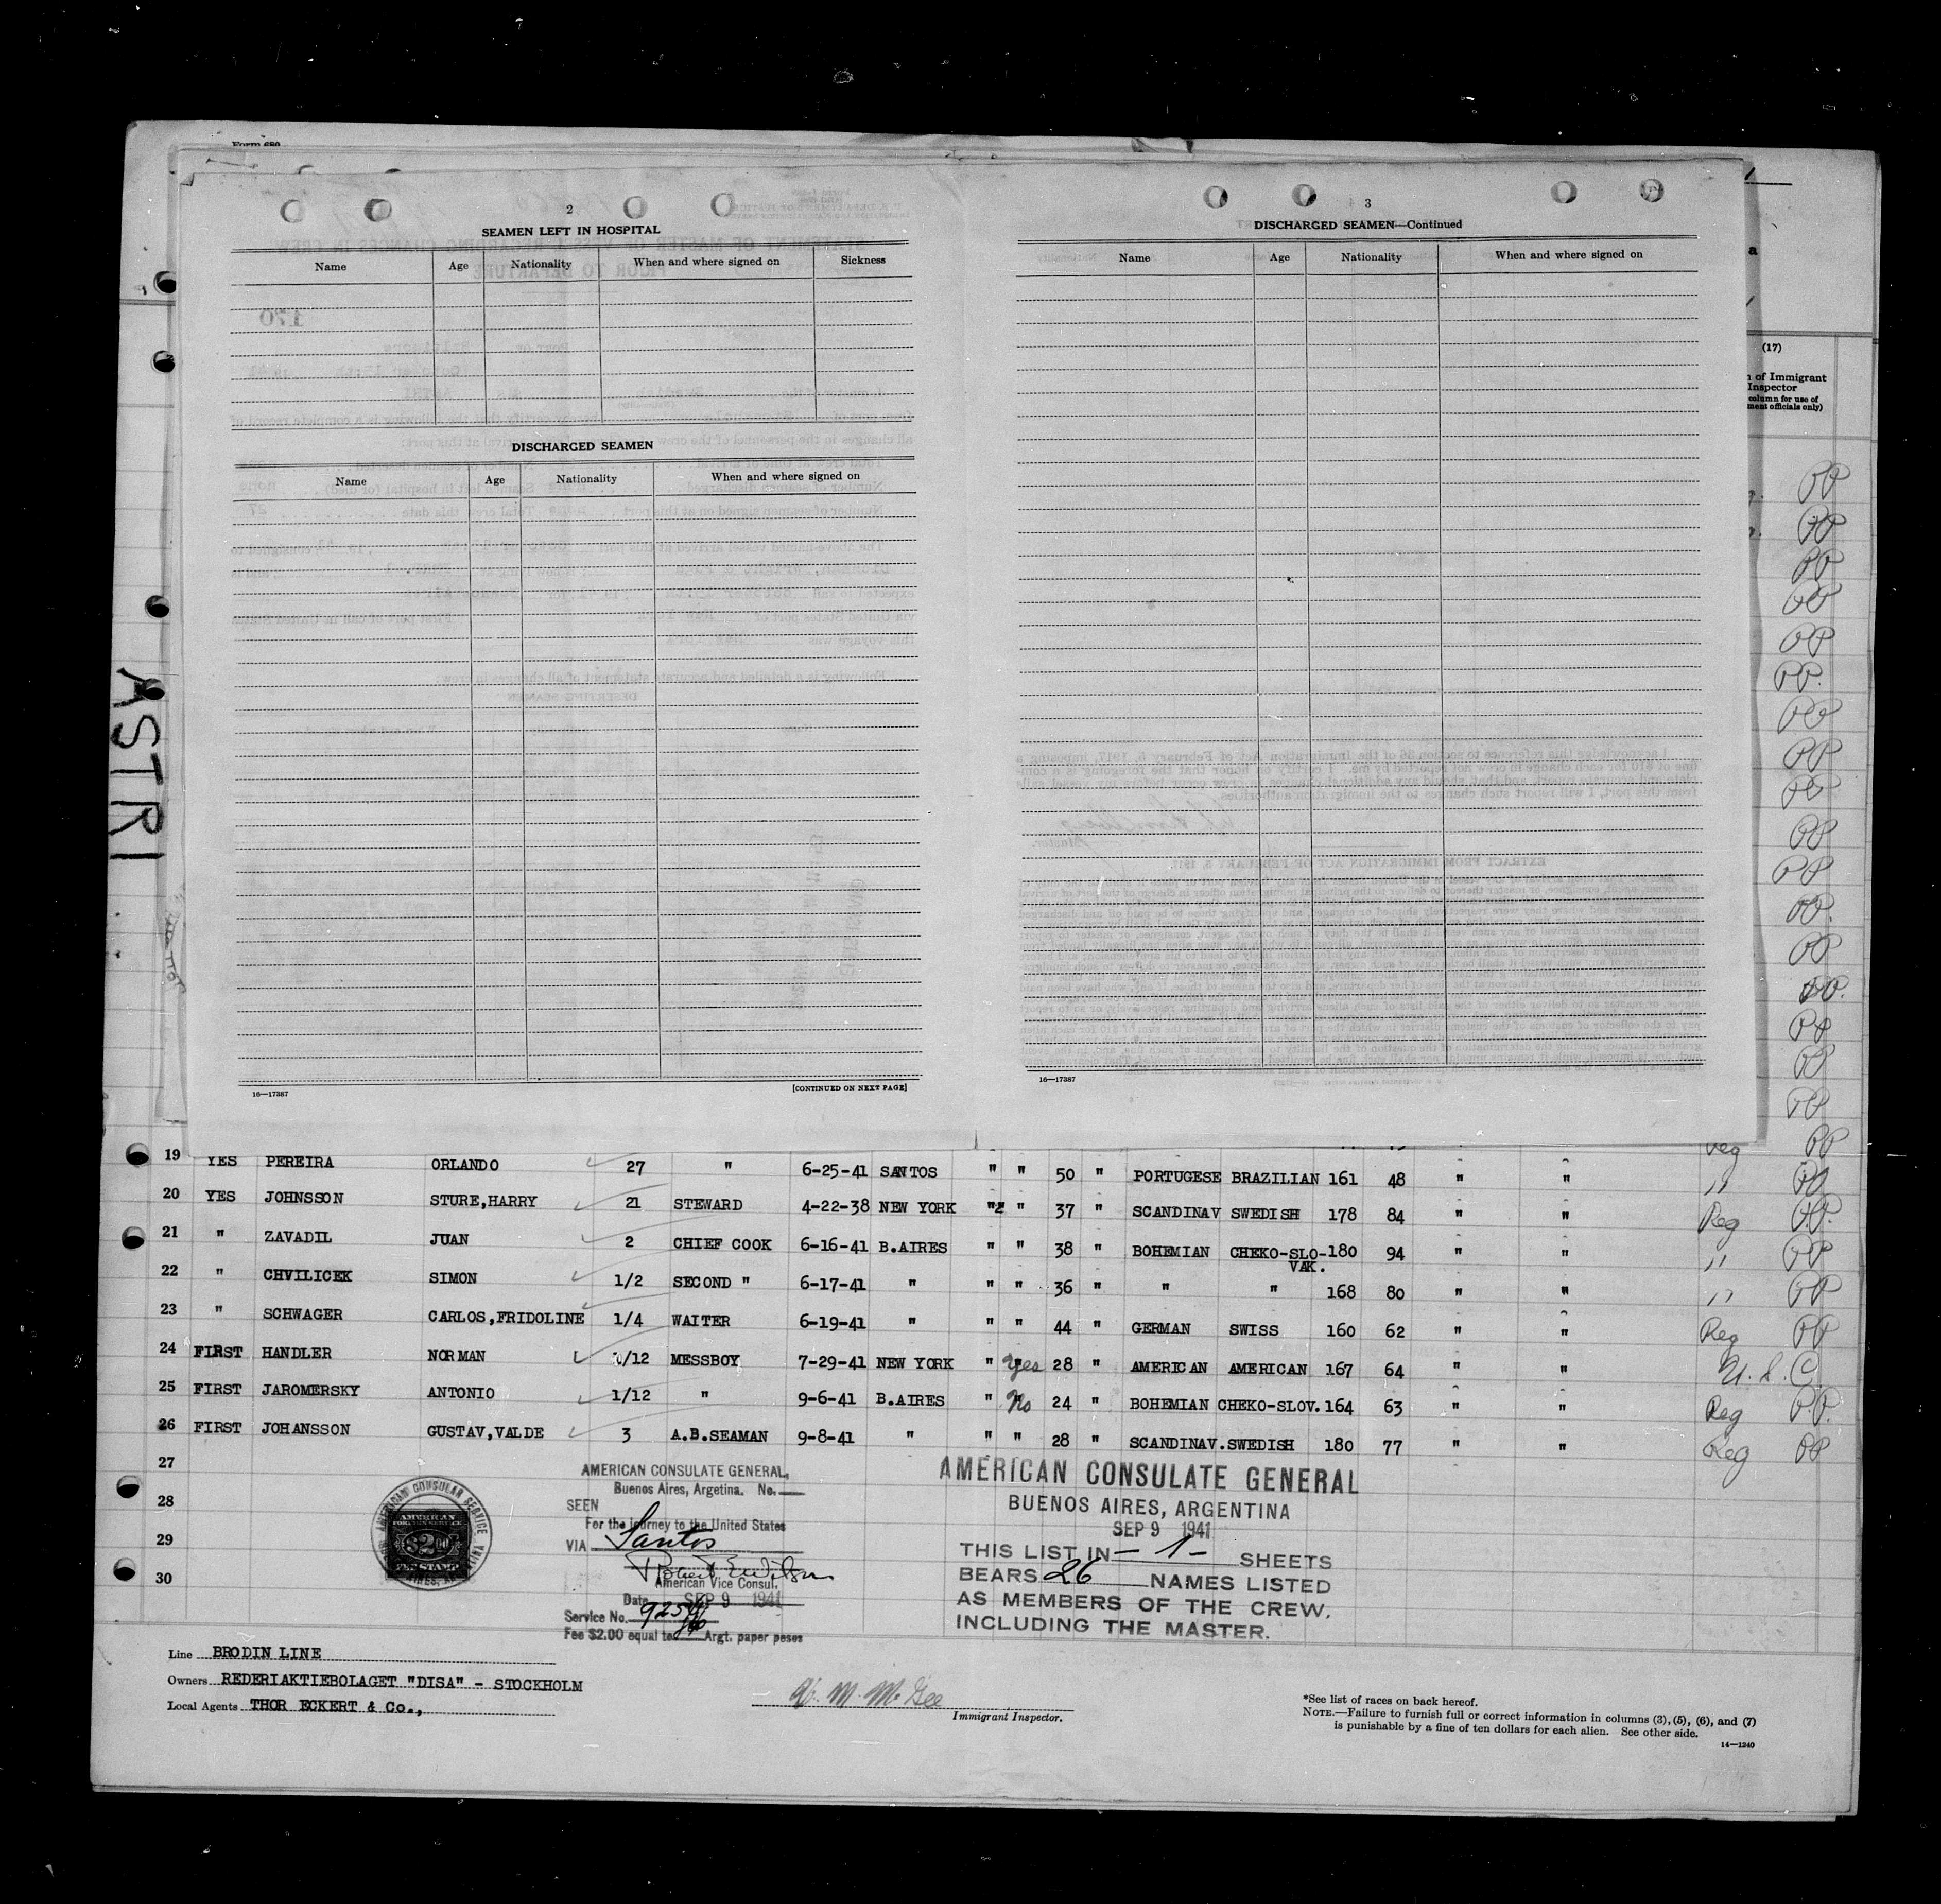 Form 680
2
SEAMEN LEFT IN HOSPITAL
Name Age Nationality When and where signed on Sickness
DISCHARGED SEAMEN
Name Age Nationality When and where signed on
16—17387 [CONTINUED ON NEXT PAGE]
3
DISCHARGED SEAMEN—Continued
Name Age Nationality When and where signed on
16—17387
a
(17)
of Immigrant
Inspector
column for use of
ment officials only)
PP
PP
PP
PP
PP
PP.
PP
PP
PP
PP
PP
PP.
PP
PP.
PP
PP
PP
ASTRI
Reg PP
19 YES PEREIRA ORLANDO 27 " 6-25-41 SANTOS " " 50 " PORTUGESE BRAZILIAN 161 48 " " " PP
20 YES JOHNSSON STURE,HARRY 21 STEWARD 4-22-38 NEW YORK " " 37 " SCANDINAV SWEDISH 178 84 " " Reg PP.
21 " ZAVADIL JUAN 2 CHIEF COOK 6-16-41 B.AIRES " " 38 " BOHEMIAN CHEKO-SLO-180 94 " " " PP
VAK.
22 " CHVILICEK SIMON 1/2 SECOND " 6-17-41 " " " 36 " " " 168 80 " " " PP
23 " SCHWAGER CARLOS,FRIDOLINE 1/4 WAITER 6-19-41 " " " 44 " GERMAN SWISS 160 62 " " Reg PP
24 FIRST HANDLER NORMAN 1/12 MESSBOY 7-29-41 NEW YORK " Yes 28 " AMERICAN AMERICAN 167 64 " " U.S.C.
25 FIRST JAROMERSKY ANTONIO 1/12 " 9-6-41 B.AIRES " No 24 " BOHEMIAN CHEKO-SLOV. 164 63 " " Reg P.P.
26 FIRST JOHANSSON GUSTAV,VALDE 3 A.B.SEAMAN 9-8-41 " " " 28 " SCANDINAV. SWEDISH 180 77 " " Reg PP
27
28
29
30
AMERICAN CONSULAR SERVICE
AMERICAN
FOREIGN SERVICE
$2.00
FEE STAMP
AMERICAN CONSULATE GENERAL,
Buenos Aires, Argetina. No.
SEEN
For the journey to the United States
VIA Santos
Robert E. Wilson
American Vice Consul.
Date SEP 9 1941
Service No. 9254
Fee $2.00 equal to Argt. paper pesos
AMERICAN CONSULATE GENERAL
BUENOS AIRES, ARGENTINA
SEP 9 1941
THIS LIST IN — 1 — SHEETS
BEARS 26 NAMES LISTED
AS MEMBERS OF THE CREW,
INCLUDING THE MASTER.
Line BRODIN LINE
Owners REDERIAKTIEBOLAGET "DISA" - STOCKHOLM
Local Agents THOR ECKERT & Co.,
H. M. McGee
Immigrant Inspector.
*See list of races on back hereof.
NOTE.—Failure to furnish full or correct information in columns (3), (5), (6), and (7)
is punishable by a fine of ten dollars for each alien. See other side.
14—1240